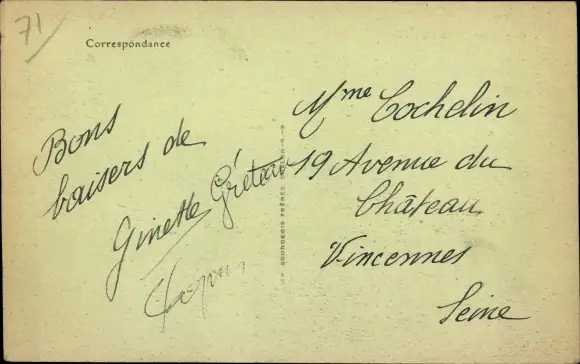 71
Correspondance
Bons
baisers de
Ginette Gréteau
Mme Cochelin
19 Avenue du
Château
Vincennes
Seine
BOURGEOIS FRÈRES